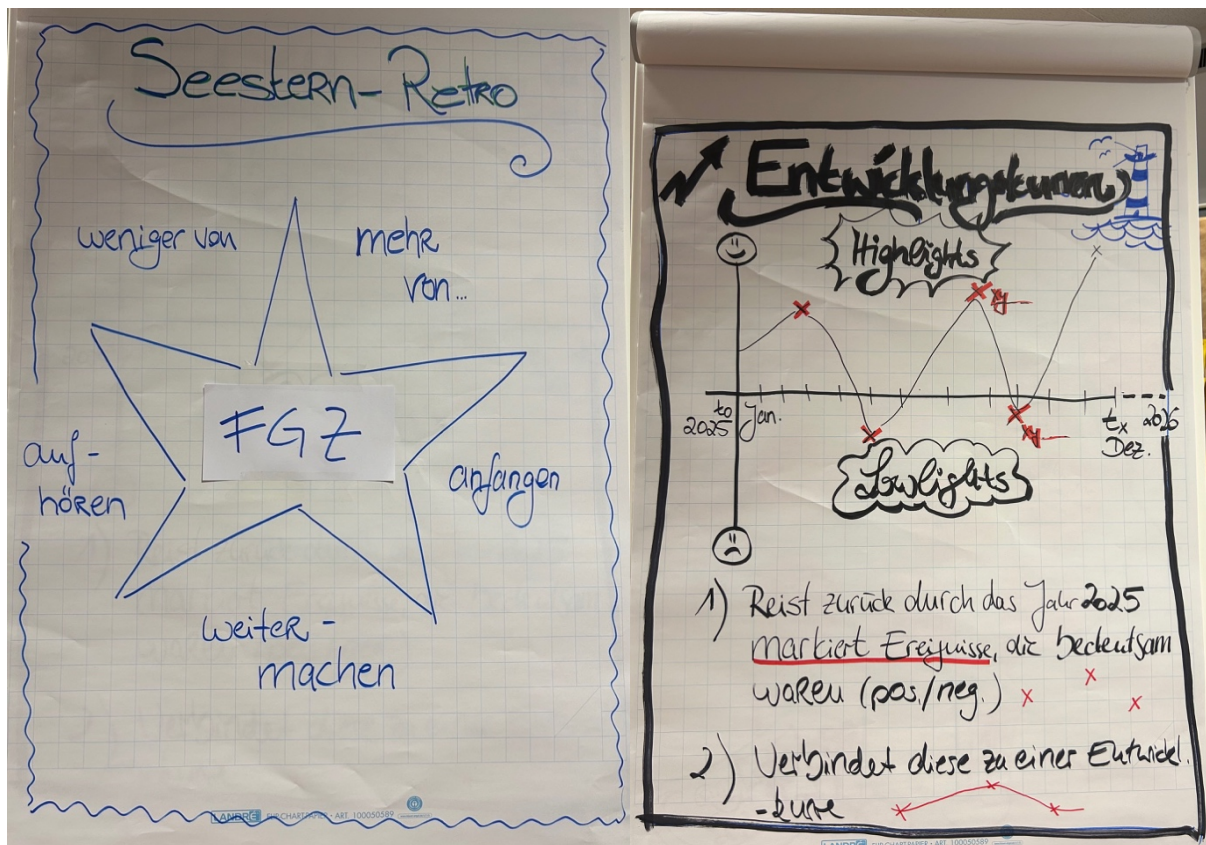 Seestern-Retro
weniger von
mehr
von...
FGZ
auf-
hören
anfangen
weiter-
machen
LANDRÉ FLIPCHARTPAPIER • ART. 100050589
Entwicklungskurven
Highlights
to
2025
Jan.
tx
Dez.
2026
Lowlights
1) Reist zurück durch das Jahr 2025
markiert Ereignisse, die bedeutsam
waren (pos./neg.)
2) Verbindet diese zu einer Entwickl.
-kurve
LANDRÉ FLIPCHARTPAPIER • ART. 100050589